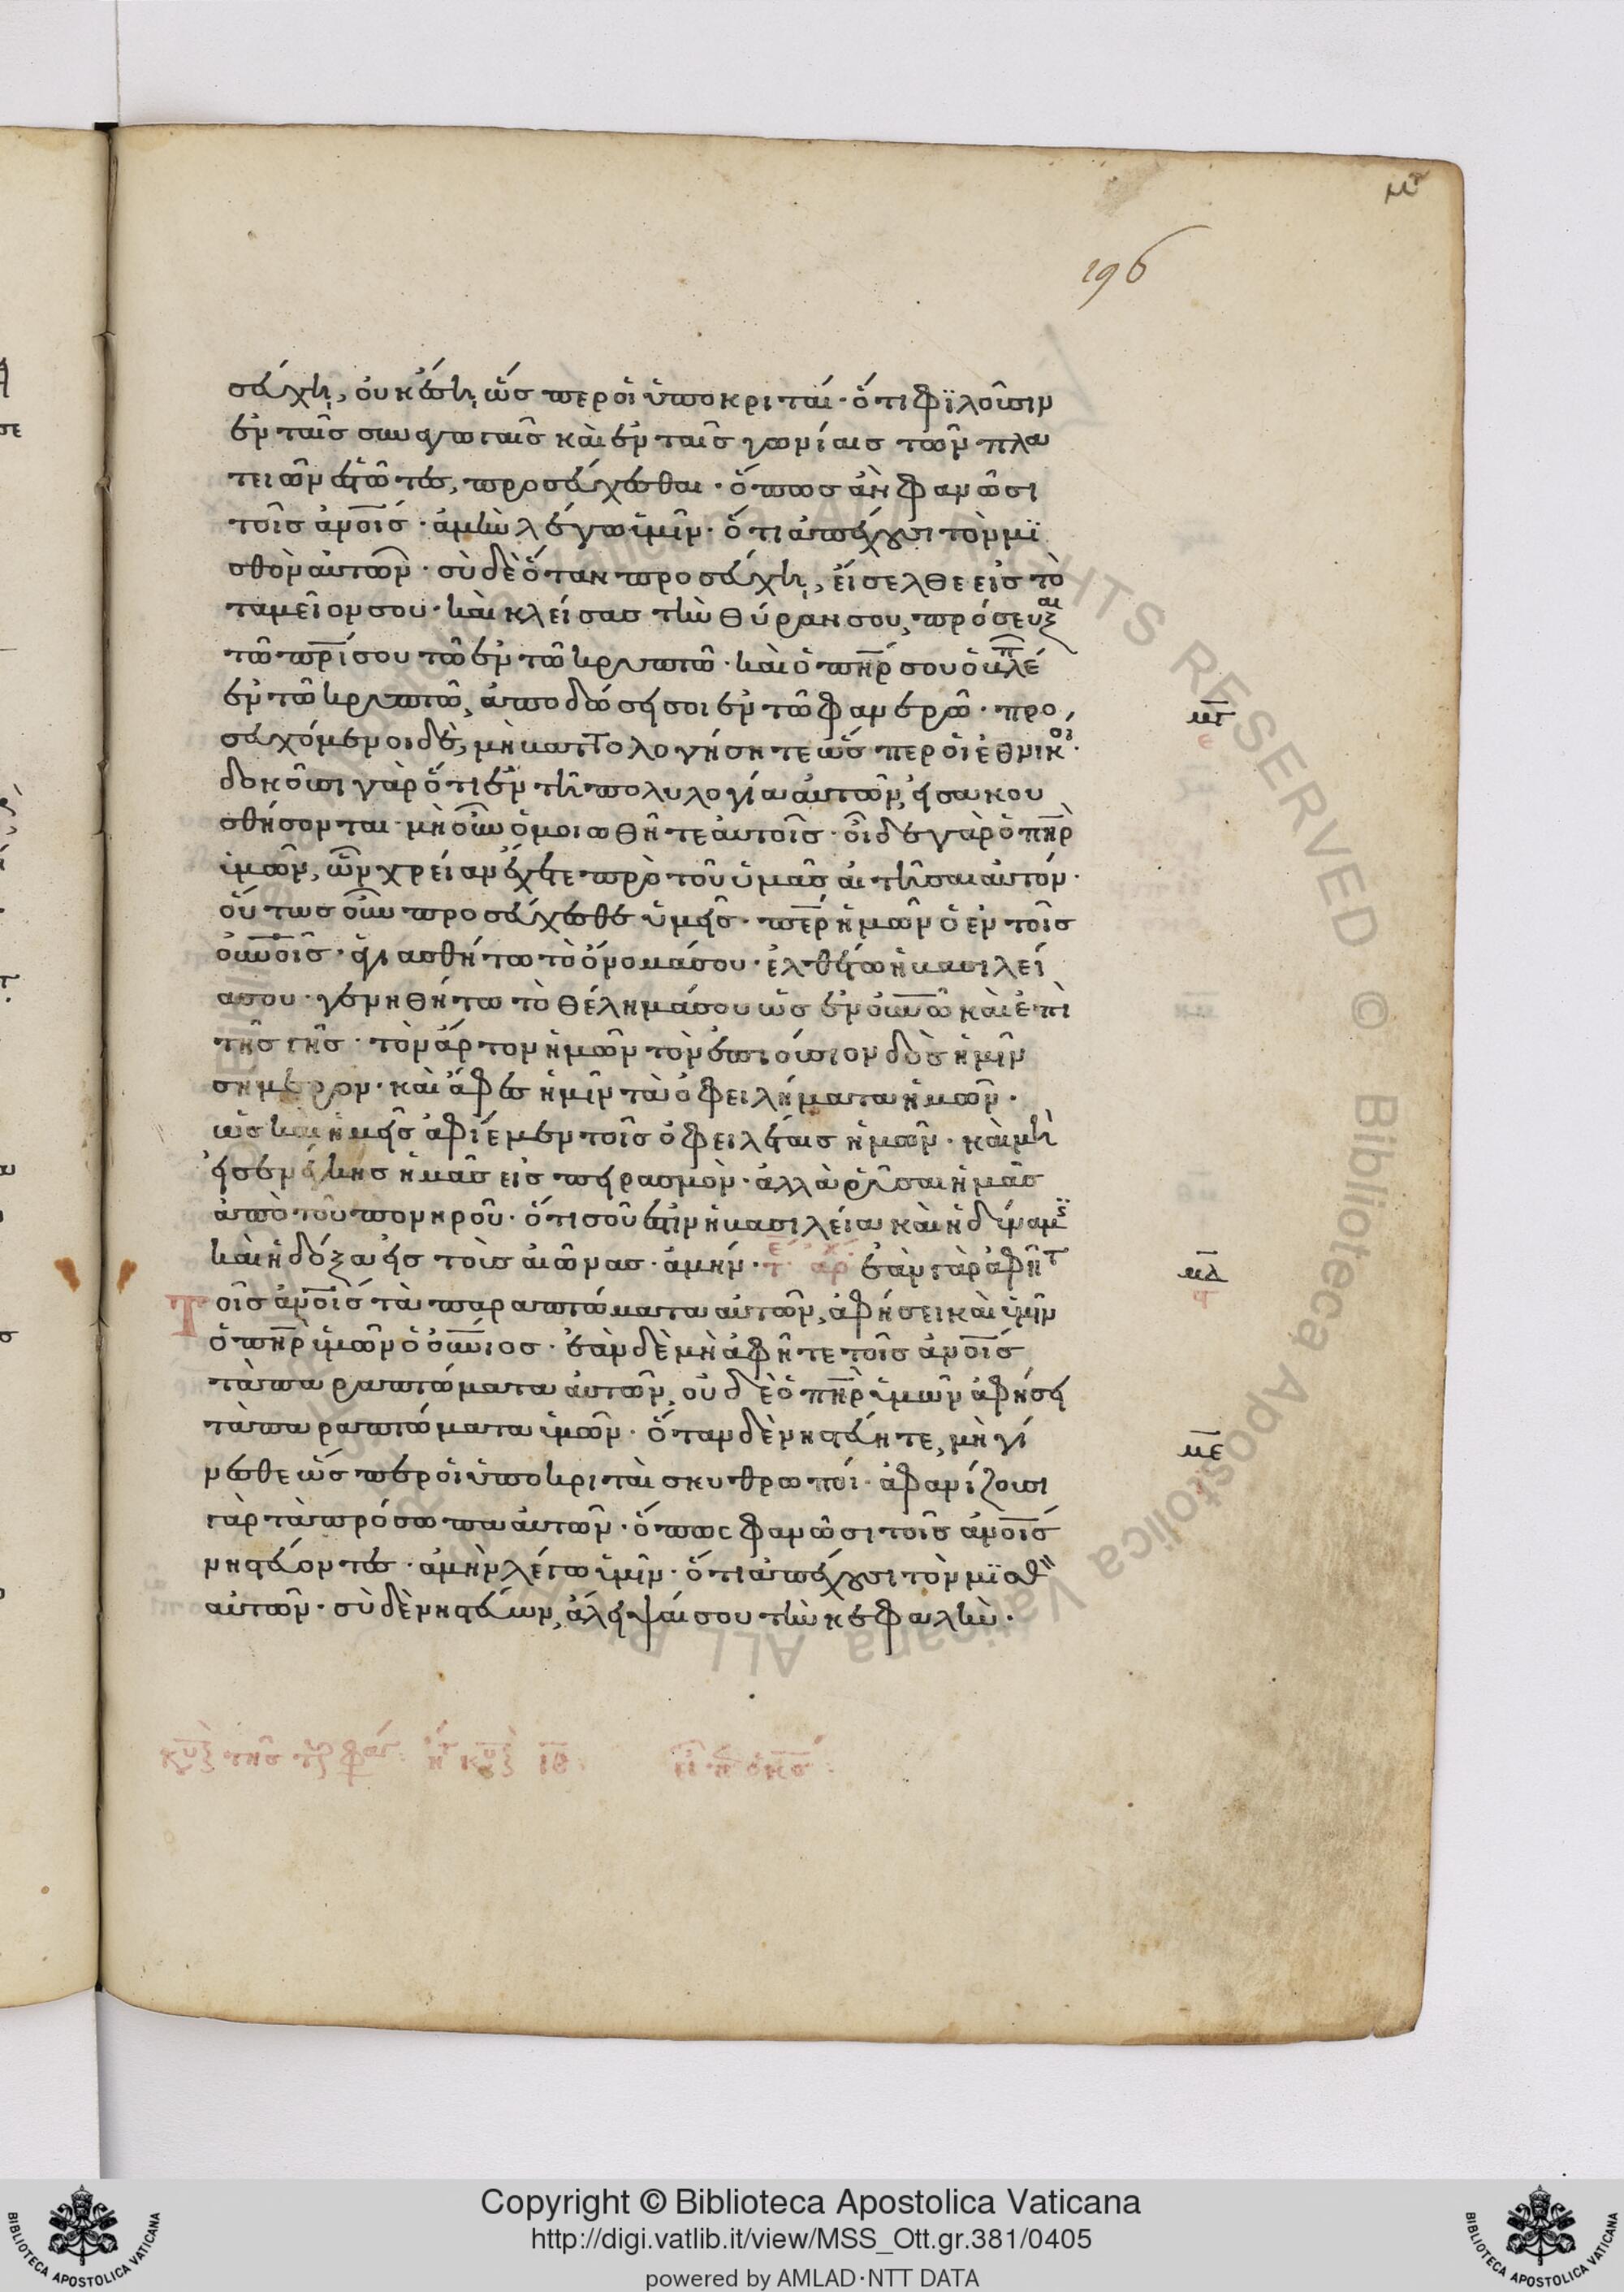 196
σεύχῃ, οὐκ ἔσῃ ὥσπερ οἱ ὑποκριταί· ὅτι φϊλοῦσιν
ἐν ταῖς συναγωγαῖς καὶ ἐν ταῖς γωνίαις τῶν πλα
τειῶν ἑστῶτες, προσεύχεσθαι· ὅπως ἂν φανῶσι
τοῖς ἀν̅ο̅ι̅ς· ἀμὴν λέγω ὑμῖν· ὅτι ἀπέχουσι τὸν μϊ
σθὸν αὐτῶν· σὺ δὲ ὅταν προσεύχῃ, εἴσελθε εἰς τὸ
ταμεῖον σου· καὶ κλείσας τὴν θύραν σου, πρόσευξαι
τῶ πρ̅ί σου τῶ ἐν τῶ κρυπτῶ· καὶ ὁ πη̅ρ σου ὁ βλέπ
ἐν τῶ κρυπτῶ, ἀποδώσει σοι ἐν τῶ φανερῶ· προ
σευχόμενοι δὲ, μὴ βαττολογήσητε ὥσπερ οἱ ἐθνικοί·
δοκοῦσι γὰρ ὅτι ἐν τῆ πολυλογία αὐτῶν, εἰσακου
σθήσονται· μὴ οὖν ὁμοιωθῆτε αὐτοῖς· οἶδε γὰρ ὁ πη̅ρ
ὑμῶν, ὧν χρείαν ἔχετε πρὸ τοῦ ὑμᾶς αἰτῆσαι αὐτόν·
οὕτως οὖν προσεύχεσθε ὑμεῖς· πε̅ρ ἡμῶν ὁ ἐν τοῖς
οὐν̅ο̅ι̅ς· ἁγιασθήτω τὸ ὄνομά σου· ἐλθέτω ἡ βασιλεί
α σου· γενηθήτω τὸ θέλημά σου ὡς ἐν οὐν̅ῶ καὶ ἐπὶ
τῆς γῆς· τὸν ἄρτον ἡμῶν τὸν ἐπιούσιον δὸς ἡμῖν
σήμερον· καὶ ἄφες ἡμῖν τὰ ὀφειλήματα ἡμῶν·
ὡς καὶ ἡμεῖς ἀφίεμεν τοῖς ὀφειλέταις ἡμῶν· καὶ μὴ
εἰσενέγκης ἡμᾶς εἰς πειρασμὸν· ἀλλὰ ῥῦσαι ἡμᾶς
ἀπὸ τοῦ πονηροῦ· ὅτι σοῦ ἐστιν ἡ βασιλεία καὶ ἡ δύναμϊς
καὶ ἡ δόξα εἰς τοὺς αἰῶνας· ἀμήν· ἐὰν γὰρ ἀφῆτ
Τοῖς ἀν̅ο̅ι̅ς τὰ παραπτώματα αὐτῶν, ἀφήσει καὶ ὑμῖν
ὁ πη̅ρ ὑμῶν ὁ οὐν̅ιος· ἐὰν δὲ μὴ ἀφῆτε τοῖς ἀν̅ο̅ι̅ς
τὰ παραπτώματα αὐτῶν, οὐδὲ ὁ πη̅ρ ὑμῶν ἀφήσει
τὰ παραπτώματα ὑμῶν· ὅταν δὲ νηστεύητε, μὴ γί
νεσθε ὥσπερ οἱ ὑποκριταὶ σκυθρωποί· ἀφανίζουσι
γὰρ τὰ πρόσωπα αὐτῶν· ὅπως φανῶσι τοῖς ἀν̅ο̅ι̅ς
νηστεύοντες· ἀμὴν λέγω ὑμῖν· ὅτι ἀπέχουσι τὸν μϊσθὸν
αὐτῶν· σὺ δὲ νηστεύων, ἄλειψαί σου τὴν κεφαλὴν·
μ̅γ
μ̅δ
μ̅ε
Copyright © Biblioteca Apostolica Vaticana
http://digi.vatlib.it/view/MSS_Ott.gr.381/0405
powered by AMLAD·NTT DATA
BIBLIOTECA APOSTOLICA VATICANA
BIBLIOTECA APOSTOLICA VATICANA